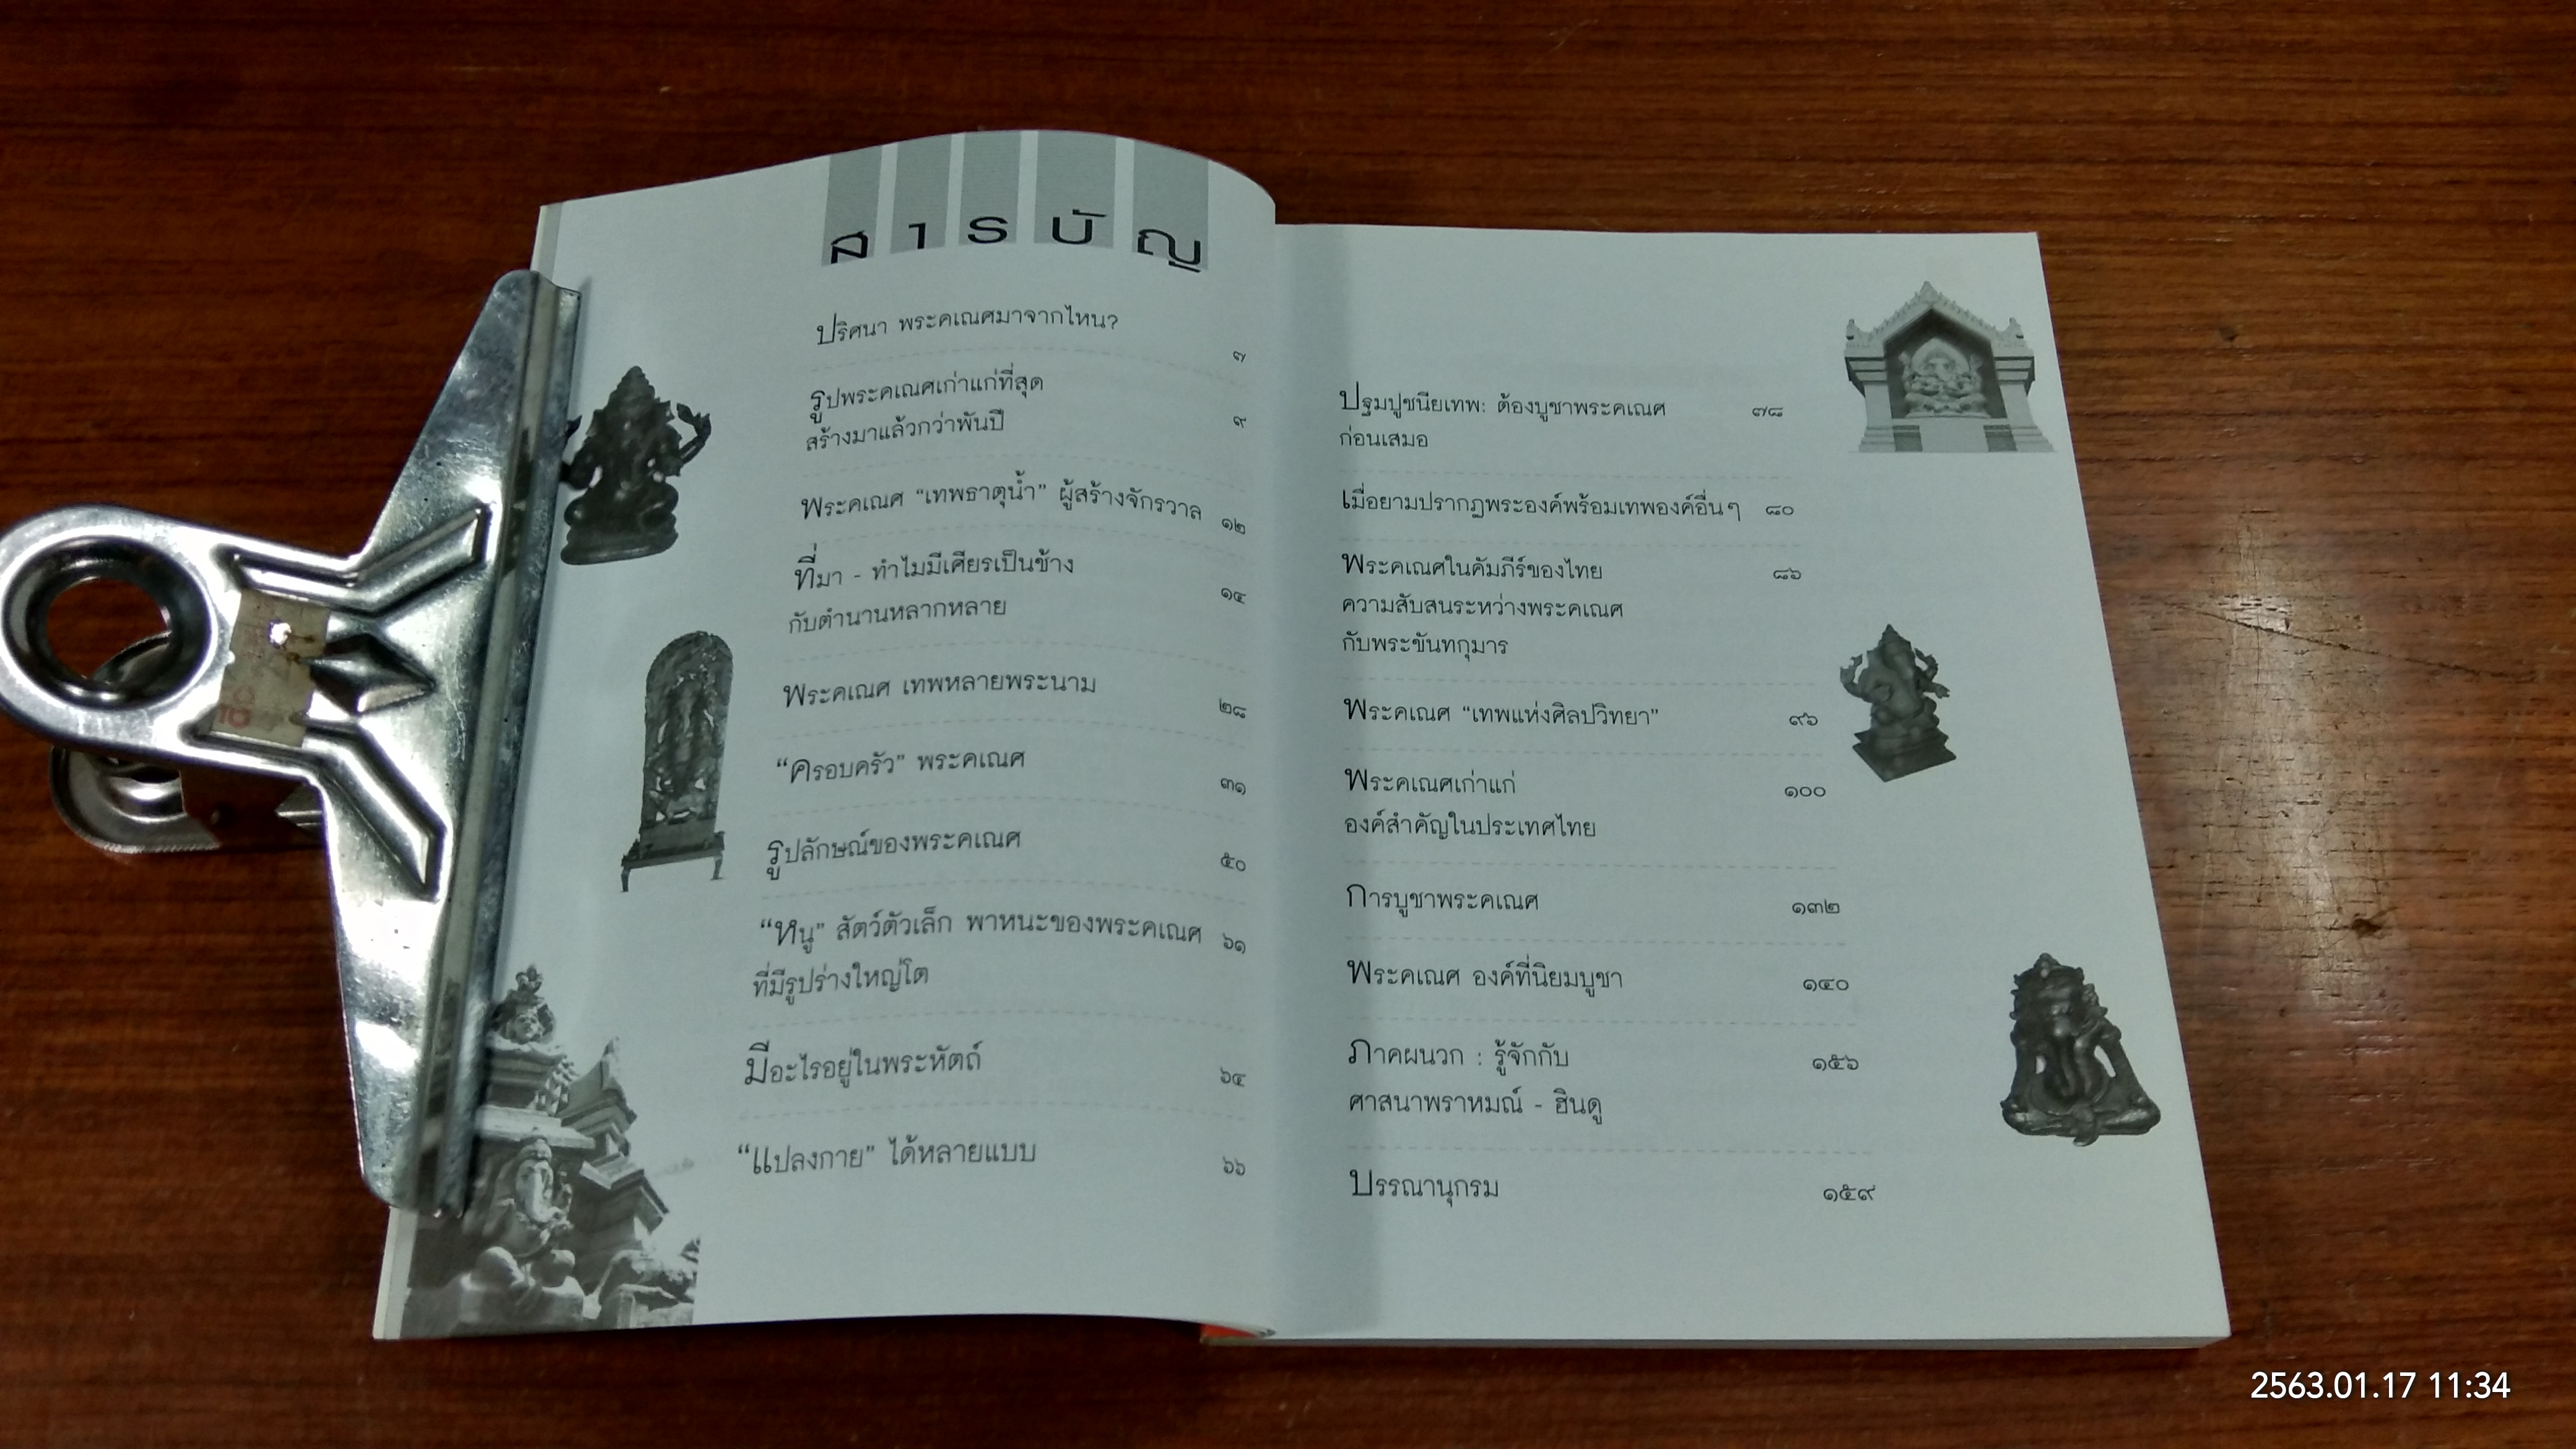 สารบัญ
ปริศนา พระคเณศมาจากไหน?
๗
รูปพระคเณศเก่าแก่ที่สุด
สร้างมาแล้วกว่าพันปี ๙
พระคเณศ “เทพธาตุน้ำ” ผู้สร้างจักรวาล ๑๒
ที่มา - ทำไมมีเศียรเป็นช้าง ๑๔
กับตำนานหลากหลาย
พระคเณศ เทพหลายพระนาม ๒๘
“ครอบครัว” พระคเณศ ๓๑
รูปลักษณ์ของพระคเณศ ๕๐
“หนู” สัตว์ตัวเล็ก พาหนะของพระคเณศ ๖๑
ที่มีรูปร่างใหญ่โต
มีอะไรอยู่ในพระหัตถ์ ๖๔
“แปลงกาย” ได้หลายแบบ ๖๖
ปฐมปูชนียเทพ: ต้องบูชาพระคเณศ ๗๘
ก่อนเสมอ
เมื่อยามปรากฏพระองค์พร้อมเทพองค์อื่นๆ ๘๐
พระคเณศในคัมภีร์ของไทย ๘๖
ความสับสนระหว่างพระคเณศ
กับพระขันทกุมาร
พระคเณศ “เทพแห่งศิลปวิทยา” ๙๖
พระคเณศเก่าแก่ ๑๐๐
องค์สำคัญในประเทศไทย
การบูชาพระคเณศ ๑๓๒
พระคเณศ องค์ที่นิยมบูชา ๑๔๐
ภาคผนวก : รู้จักกับ ๑๕๖
ศาสนาพราหมณ์ - ฮินดู
บรรณานุกรม ๑๕๙
2563.01.17 11:34